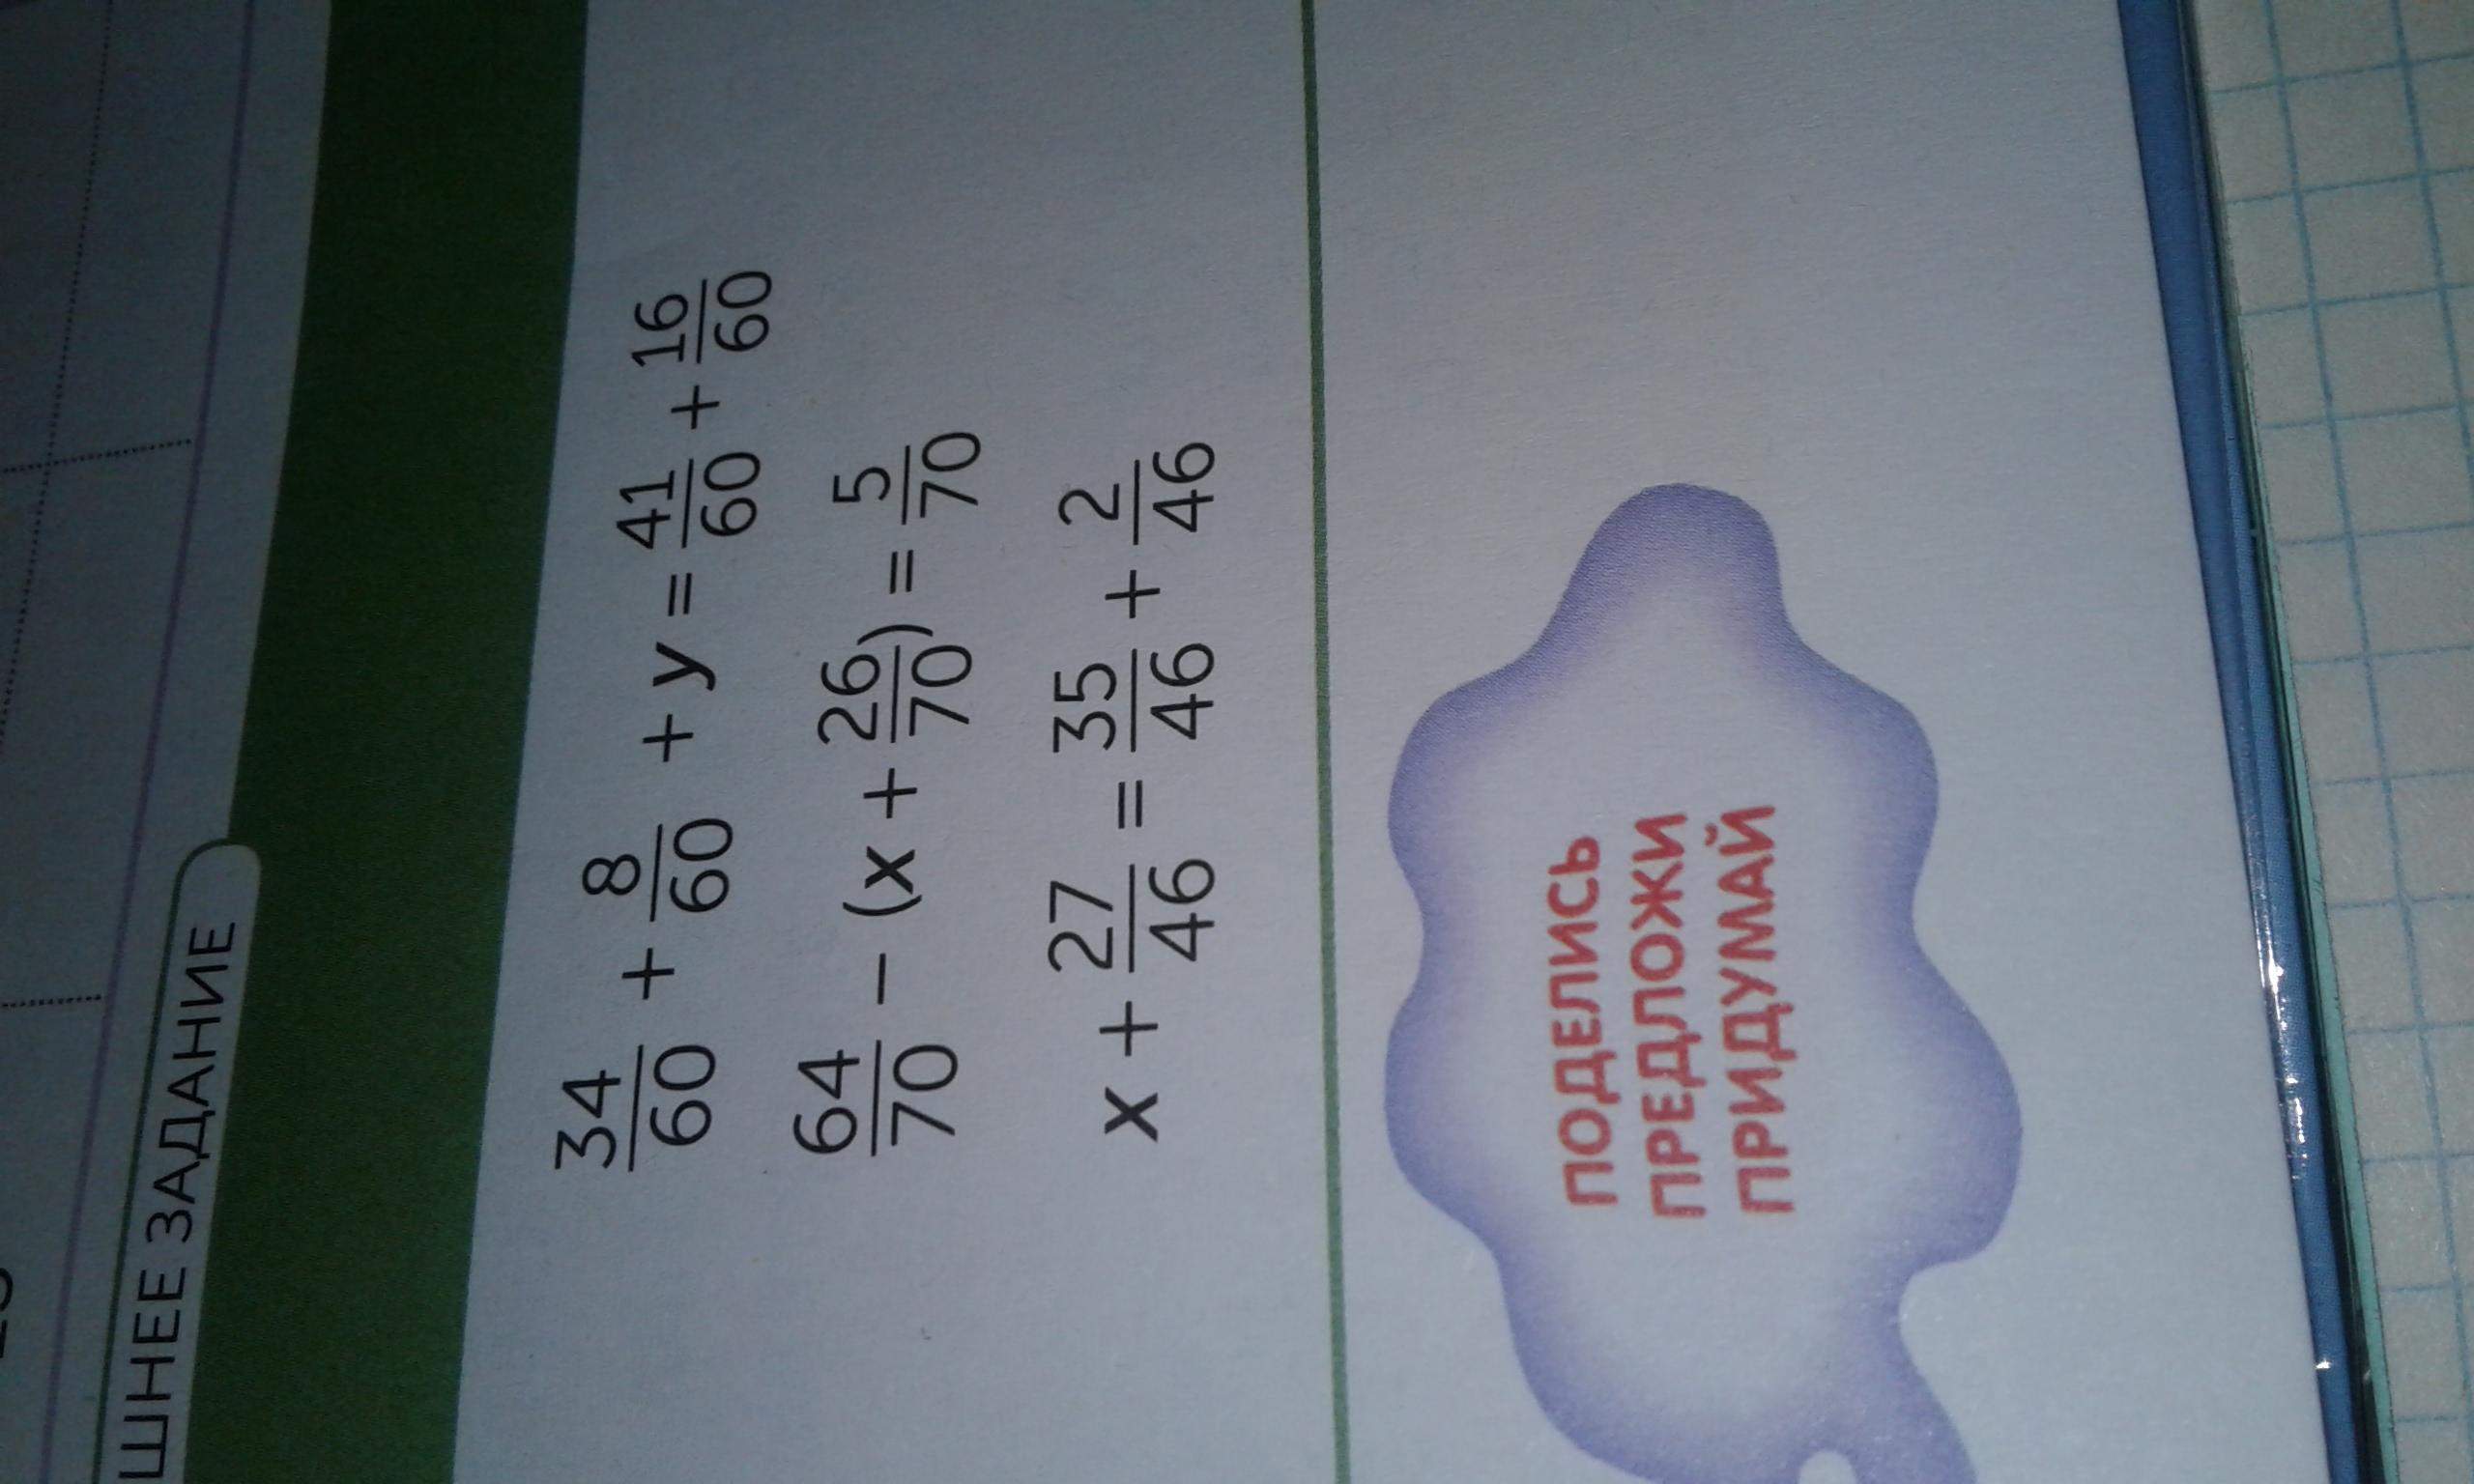 ШНЕЕ ЗАДАНИЕ
34/60 + 8/60 + y = 41/60 + 16/60
64/70 − (x + 26/70) = 5/70
x + 27/46 = 35/46 + 2/46
ПОДЕЛИСЬ
ПРЕДЛОЖИ
ПРИДУМАЙ